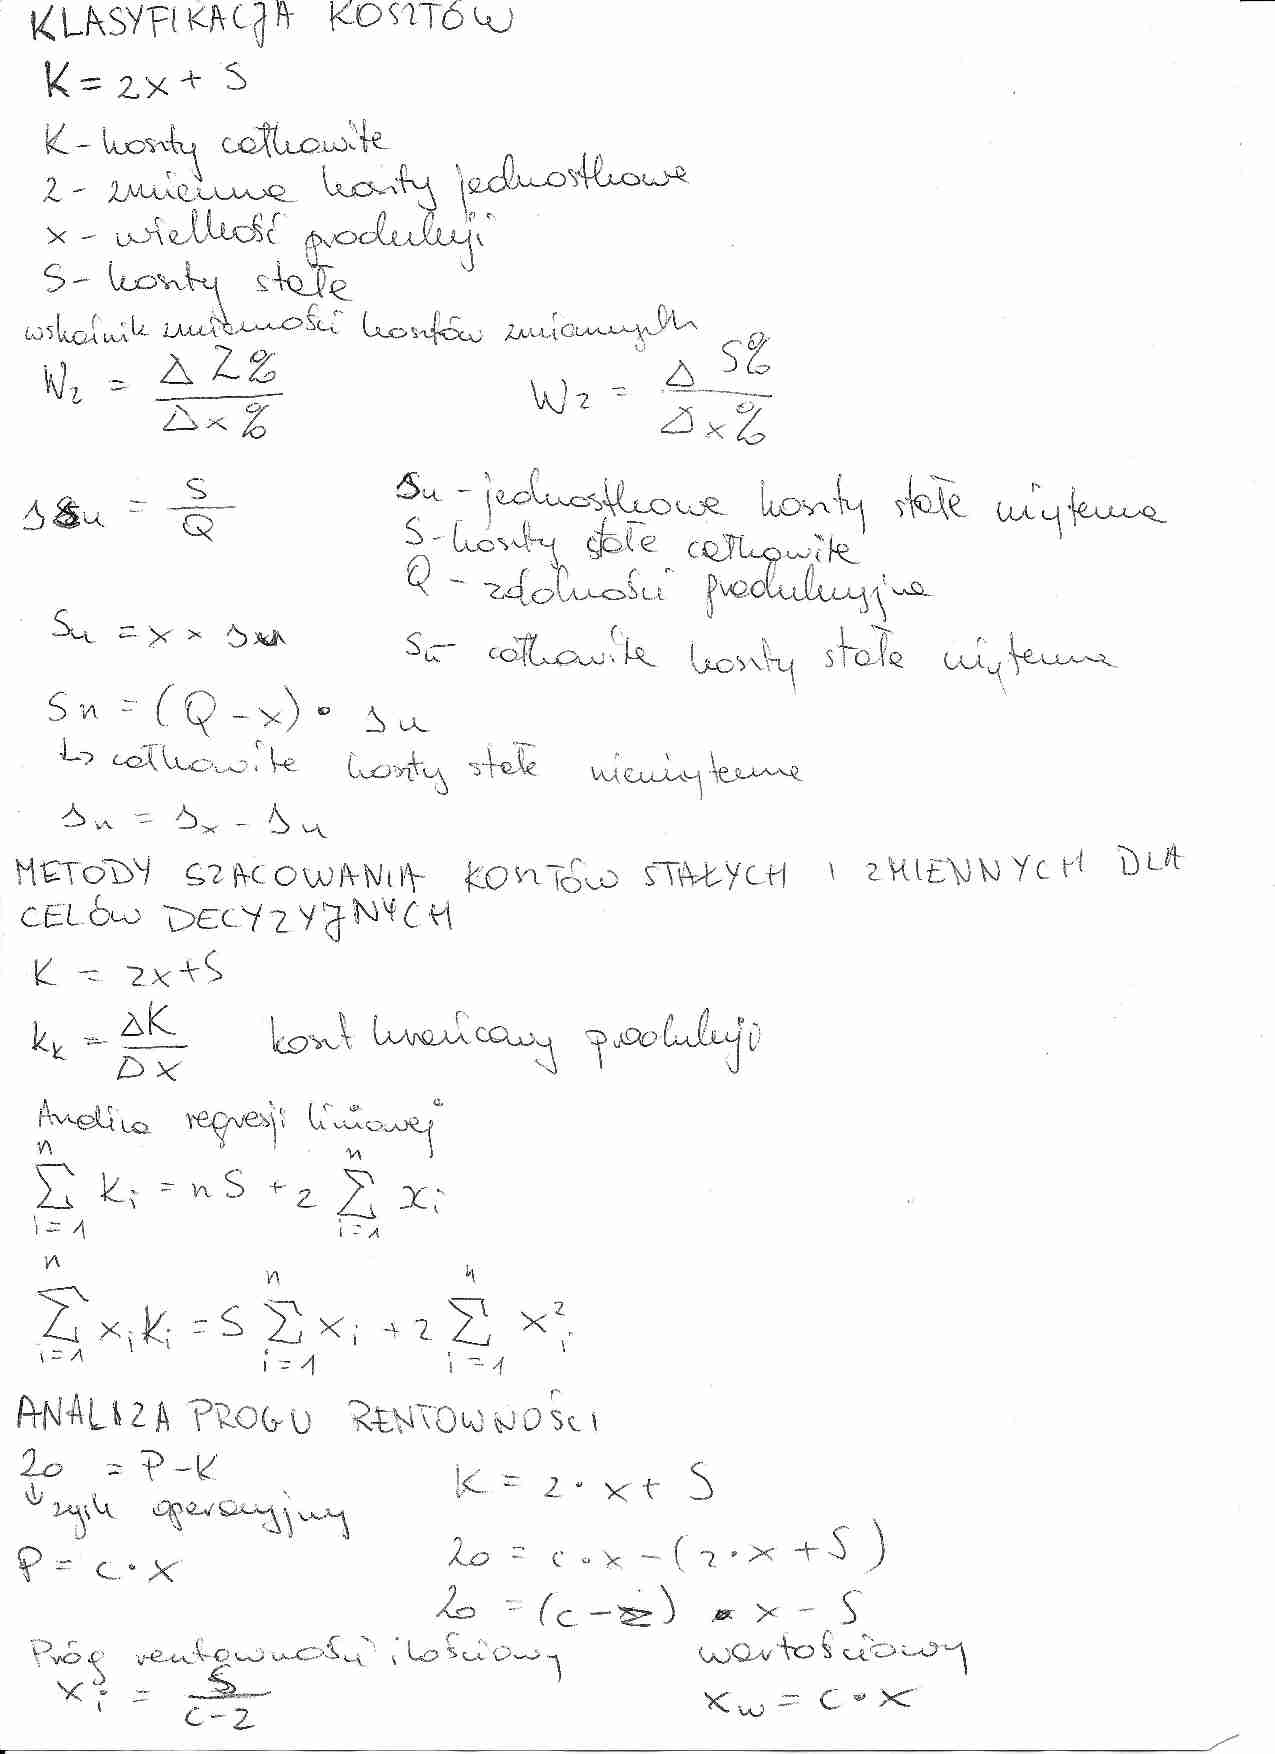 KLASYFIKACJA KOSZTÓW
K = zx + S
K - koszty całkowite
z - zmienne koszty jednostkowe
x - wielkość produkcji
S - koszty stałe
wskaźnik zmienności kosztów zmiennych
Wz = ΔZ% / Δx%    Wz = ΔS% / Δx%
su = S / Q    su - jednostkowe koszty stałe użyteczne
S - koszty stałe całkowite
Q - zdolności produkcyjne
Su = x × su    Su - całkowite koszty stałe użyteczne
Sn = (Q - x) • su
↳ całkowite koszty stałe nieużyteczne
sn = sx - su
METODY SZACOWANIA KOSZTÓW STAŁYCH I ZMIENNYCH DLA
CELÓW DECYZYJNYCH
K = zx + S
kk = ΔK / Dx    koszt krańcowy produkcji
Analiza regresji liniowej
∑ⁿᵢ₌₁ ki = nS + z ∑ⁿᵢ₌₁ xi
∑ⁿᵢ₌₁ xi ki = S ∑ⁿᵢ₌₁ xi + z ∑ⁿᵢ₌₁ xi²
ANALIZA PROGU RENTOWNOŚCI
Zo = P - K    K = z • x + S
↳ zysk operacyjny
P = c • x    Zo = c • x - (z • x + S)
Zo = (c - z) • x - S
Próg rentowności ilościowy    wartościowy
xi = S / c - z    xw = c • x